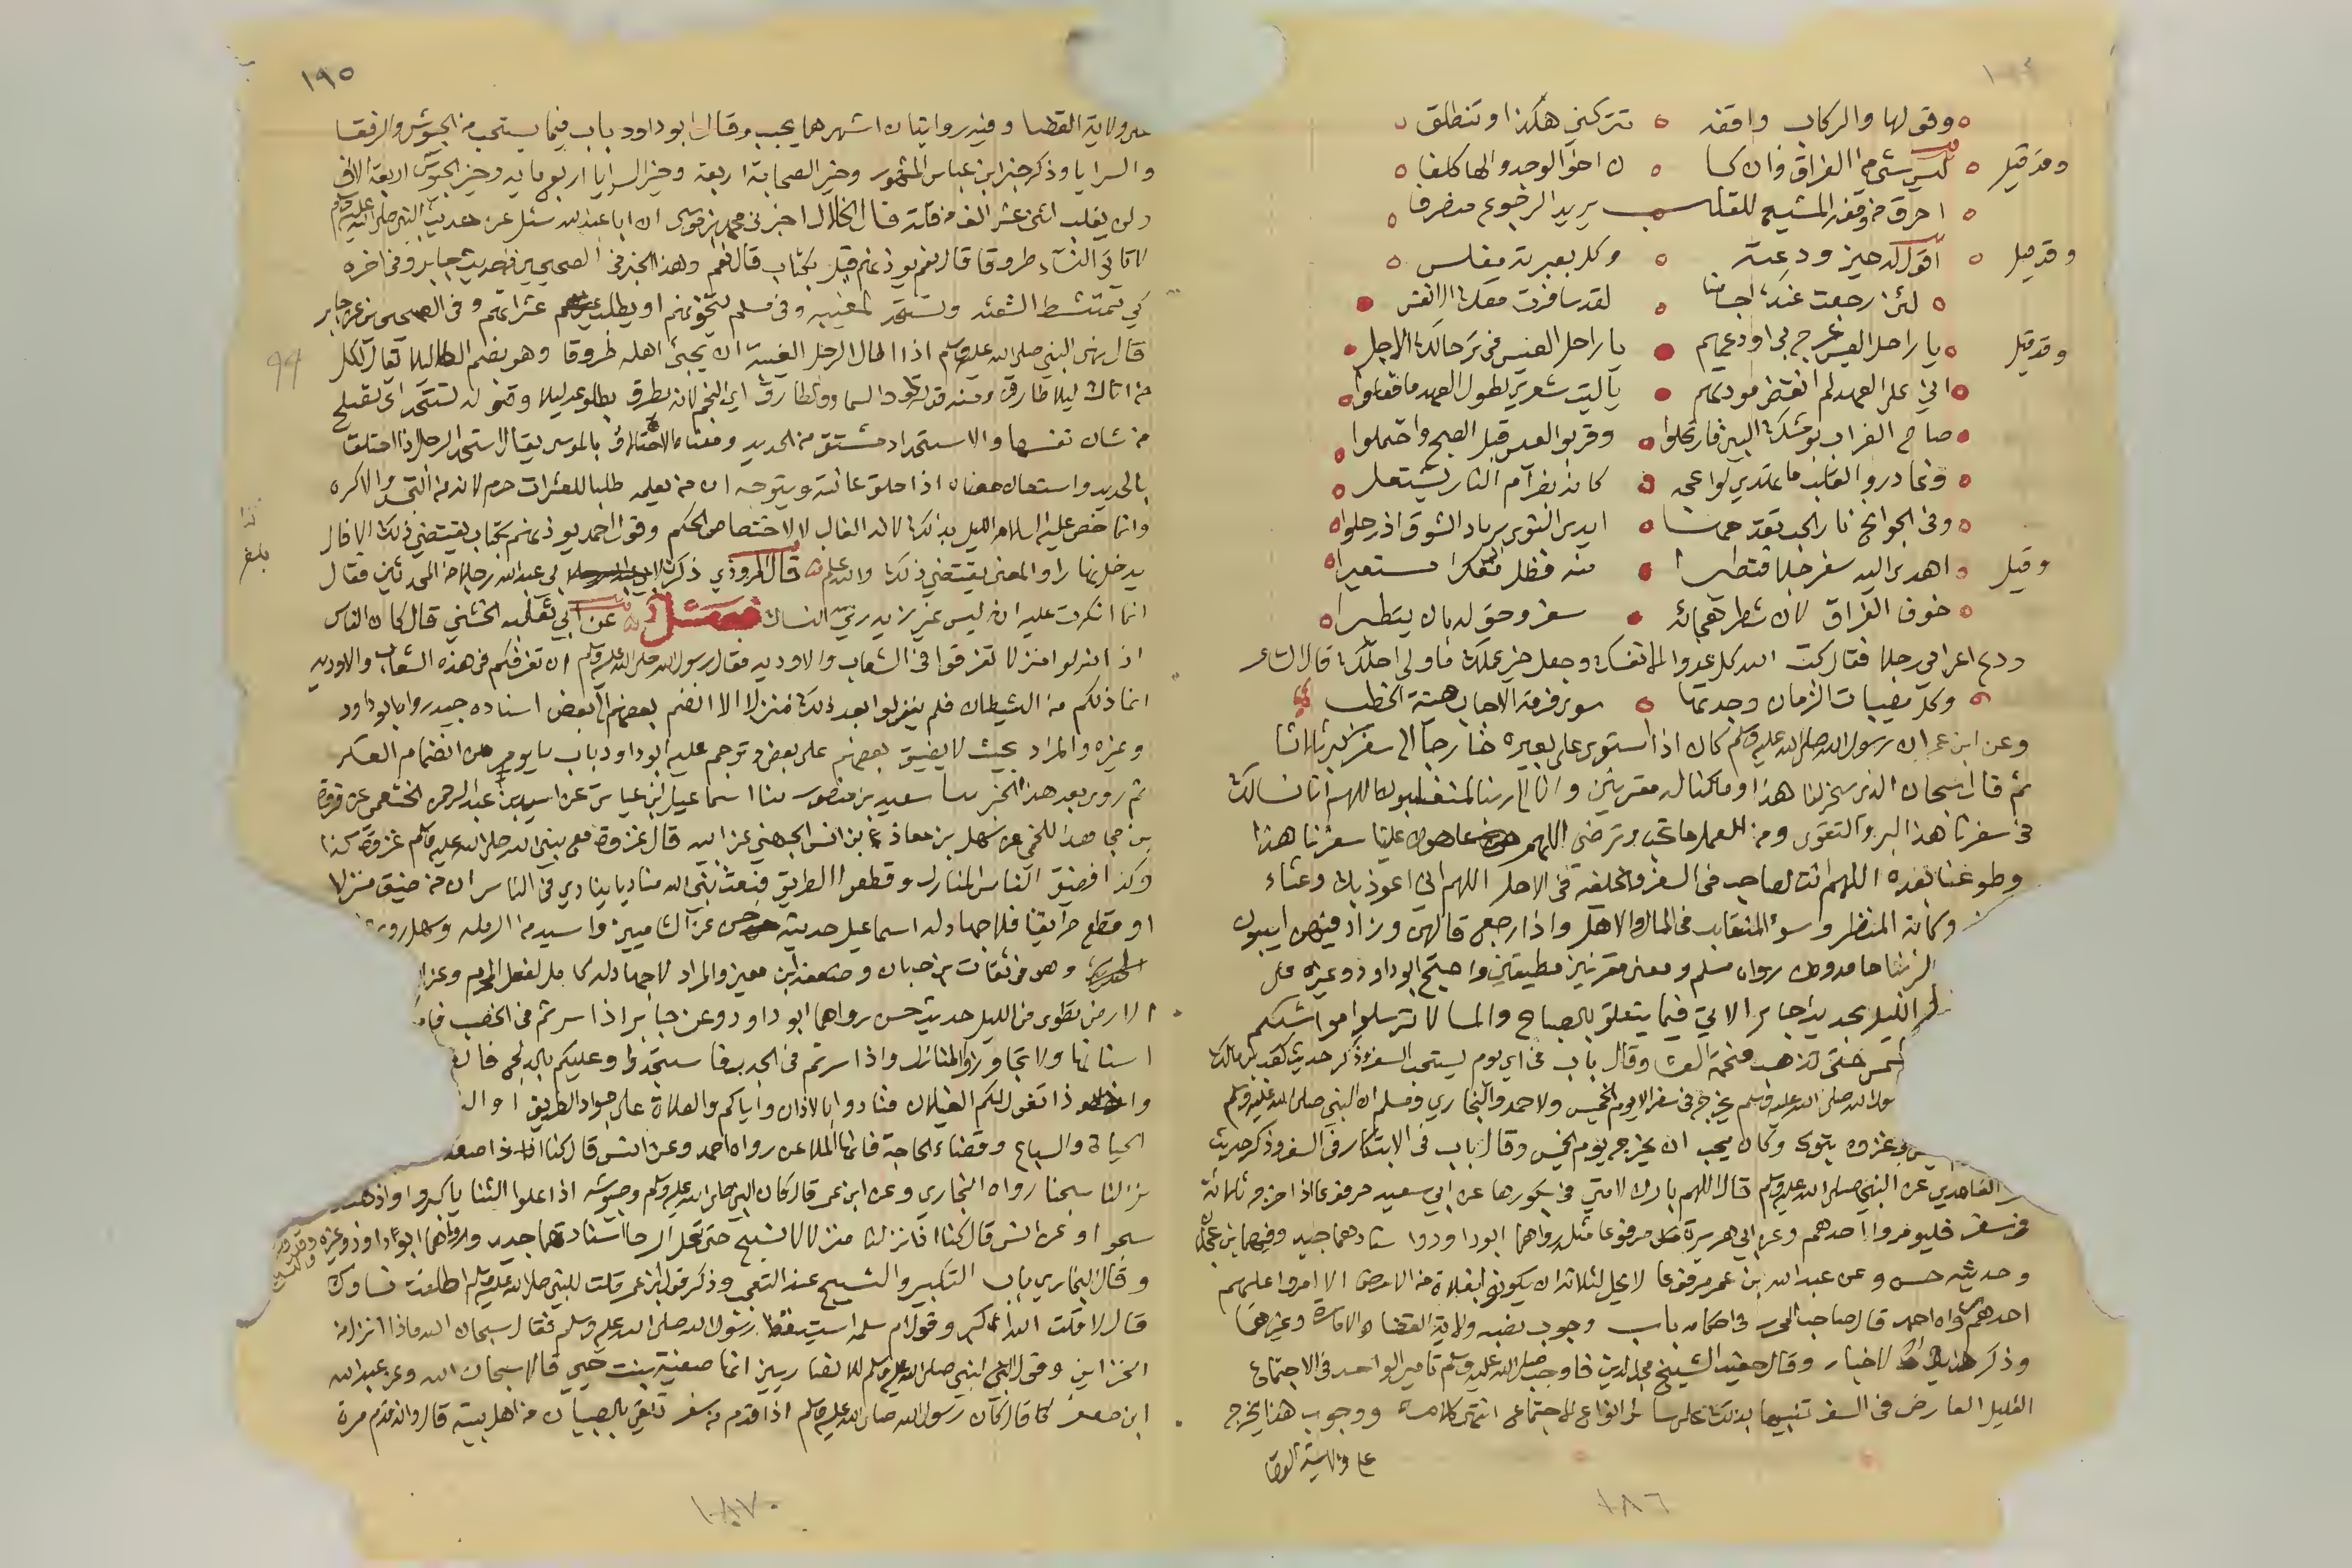 ١٩٤
وقولها والركاب واقفة تتركني هكذا وتنطلق
وقد قيل ليس شيء من الفراق وان كا ن اخو الوجد والها كلفا
احرق من وقفة المشيع للقلب يريد الرجوع منصرفا
وقد قيل اقول له حين ودعته وكل بعبرته مفلس
لئن رجعت عنك اجسامنا لقد سافرت معك الانفس
وقد قيل يا راحل العيس عرج بي اودعهم يا راحل العيس في ترحالك الاجل
اني على العهد لم انقض مودتهم يا ليت شعري بطول العهد ما فعلوا
صاح الغراب بوشك البين فارتحلوا وقربوا العيس قبل الصبح واحتملوا
وغادروا القلب ما تهدي لواعجه كانه بضرام النار يشتعل
وفي الجوانح نار الحب تقدحها ايدي النوى بزناد الشوق اذ رحلوا
وقيل اهدى اليه سفرجلا فتطيرا منه فظل مفكرا مستعبرا
خوف الفراق لان شطر هجائه سفر وحق له بان يتطيرا
ودع اعرابي رجلا فقال كبت الله كل عدو لك الا نفسك وجعل خير عملك ما ولي اجلك قال الشاعر
وكل مصيبات الزمان وجدتها سوى فرقة الاحباب هينة الخطب
وعن ابن عمر ان رسول الله صلى الله عليه وسلم كان اذا استوى على بعيره خارجا الى سفر كبر ثلاثا
ثم قال سبحان الذي سخر لنا هذا وما كنا له مقرنين وانا الى ربنا لمنقلبون اللهم انا نسالك
في سفرنا هذا البر والتقوى ومن العمل ما تحب وترضى اللهم هون علينا سفرنا هذا
واطو عنا بعده اللهم انت الصاحب في السفر والخليفة في الاهل اللهم اني اعوذ بك من وعثاء
وكابة المنظر وسوء المنقلب في المال والاهل واذا رجع قالهن وزاد فيهن ايبون
لربنا حامدون رواه مسلم ومعنى مقرنين مطيقين واحتج ابو داود وغيره على
الليل بحديث جابر الاتي فيما يتعلق بالصباح والمسا لا ترسلوا مواشيكم
الشمس حتى تذهب فحمة العشا وقال باب في اي يوم يستحب السفر وذكر حديث كعب بن مالك
رسول الله صلى الله عليه وسلم يخرج في سفر الا يوم الخميس ولاحمد والبخاري ومسلم ان النبي صلى الله عليه وسلم
في غزوة تبوك وكان يحب ان يخرج يوم الخميس وقال باب في الابتكار في السفر وذكر حديث
الغامدي عن النبي صلى الله عليه وسلم قال اللهم بارك لامتي في بكورها عن ابي سعيد مرفوعا اذا خرج ثلاثة
في سفر فليومروا احدهم وعن ابي هريرة مرفوعا مثله رواهما ابو داود واسنادهما جيد وفيهما ابن عجلان
وحديثه حسن وعن عبد الله بن عمر مرفوعا لا يحل لثلاثة ان يكونوا بفلاة من الارض الا امروا عليهم
احدهم رواه احمد قال صاحب المحرر في احكامه باب وجوب نصبه ولاية القضاء والامارة وغيرهما
وذكر هذه الاخبار وقال حفيده الشيخ مجد الدين فاوجب صلى الله عليه وسلم تامير الواحد في الاجتماع
القليل العارض في السفر تنبيها بذلك على سائر انواع الاجتماع انتهى كلامه ووجوب هذا يخرج
على ولاية القضا
١٨٦
١٩٥
على ولاية القضا وفيه روايتان اشهرهما يجب وقال ابو داود باب فيما يستحب من الجيوش والرفقا
والسرايا وذكر خبر ابن عباس المشهور وخير الصحابة اربعة وخير السرايا اربع مايه وخير الجيوش اربعة الاف
ولن يغلب اثنى عشر الف من قلة قال الخلال اخبرني محمد بن موسى ان ابا عبد الله سئل عن حديث النبي صلى الله عليه وسلم
لا تاتوا النساء طروقا قال نعم يوذنهم قيل بكتاب قال نعم وهذا الخبر في الصحيحين من حديث جابر وفي اخره
كي تمتشط الشعثه وتستحد المغيبه وفي مسلم يتخونهم او يطلب عثراتهم وفي الصحيحين عن جابر
قال نهى النبي صلى الله عليه وسلم اذا اطال الرجل الغيبة ان يجيئ اهله طروقا وهو بضم الطا ليلا يقال لكل
من اتاك ليلا طارق ومنه قوله تعالى والسما والطارق اي النجم لانه يطرق بطلوعه ليلا وقوله تستحد اي تصلح
من شان نفسها والاستحداد مشتق من الحديد ومعناه الاحتلاق بالموسى يقال استحد الرجل اذا احتلق
بالحديد واستعان معناه اذا حلق عانته ويتوجه ان من يعلمه طلبا للعثرات حرم لانه من التجسس والا كره
وانما خص عليه السلام الليل بذلك لانه الغالب لا لاختصاص الحكم وقول احمد يوذنهم بكتاب يقتضي ذلك الا قال
يدخل نهارا والمعنى يقتضي ذلك والله اعلم قال المروذي ذكرت لابي عبد الله رجلا من المحدثين فقال
انما انكرت عليه ان ليس عنده زي النساك فصل عن ابي ثعلبه الخشني قال كان الناس
اذا نزلوا منزلا تفرقوا في الشعاب والاوديه فقال رسول الله صلى الله عليه وسلم ان تفرقكم في هذه الشعاب والاوديه
انما ذلكم من الشيطان فلم ينزلوا بعد ذلك منزلا الا انضم بعضهم الى بعض اسناده جيد رواه ابو داود
وغيره والمراد بحيث لا يضيق بعضهم على بعض وترجم عليه ابو داود باب ما يومر من انضمام العسكر
ثم روى بعد هذا الخبر ثنا سعيد بن منصور ثنا اسماعيل بن عياش عن اسيد بن عبد الرحمن الخثعمي عن فروة
بن مجاهد اللخمي عن سهل بن معاذ بن انس الجهني عن ابيه قال غزوت مع نبي الله صلى الله عليه وسلم غزوة كذا
وكذا فضيق الناس المنازل وقطعوا الطريق فبعث نبي الله مناديا ينادي في الناس ان من ضيق منزلا
او قطع طريقا فلا جهاد له اسماعيل حديثه حسن عن الشاميين واسيد من الرمله وسهل روى
وهو في ثقات ابن حبان وضعفه ابن معين والمراد لا جهاد له كامل لفعل المحرم وعن
الارض تطوى في الليل حديث حسن رواهما ابو داود وعن جابر اذا سرتم في الخصب
اسنانها ولا تجاوزوا المنازل واذا سرتم في الجدب فاستجدوا وعليكم بالدلج فان
واذا تغولت لكم الغيلان فنادوا بالاذان واياكم والصلاة على جواد الطريق
الحياة والسباع وقضاء الحاجة فانها الملاعن رواه احمد وعن انس قال كنا اذا صعدنا
نزلنا سبحنا رواه البخاري وعن ابن عمر قال كان النبي صلى الله عليه وسلم وجيوشه اذا علوا الثنايا كبروا واذا هبطوا
سبحوا وعن انس قال كنا اذا نزلنا منزلا لا نسبح حتى تحل الرحال اسنادهما جيد رواهما ابو داود وغيره
وقال البخاري باب التكبير والتسبيح عند التعجب وذكر قول عمر قلت للنبي صلى الله عليه وسلم اطلقت نساءك
قال لا قلت الله اكبر وقول ام سلمه استيقظ رسول الله صلى الله عليه وسلم فقال سبحان الله ماذا انزل من
الخزاين وقول النبي صلى الله عليه وسلم للانصاريين انما صفية بنت حيي قالا سبحان الله وعن عبد الله
ابن جعفر قال كان رسول الله صلى الله عليه وسلم اذا قدم من سفر تلقي بالصبيان من اهل بيته قال وانه قدم مرة
٩٩
بلغ
١٨٧